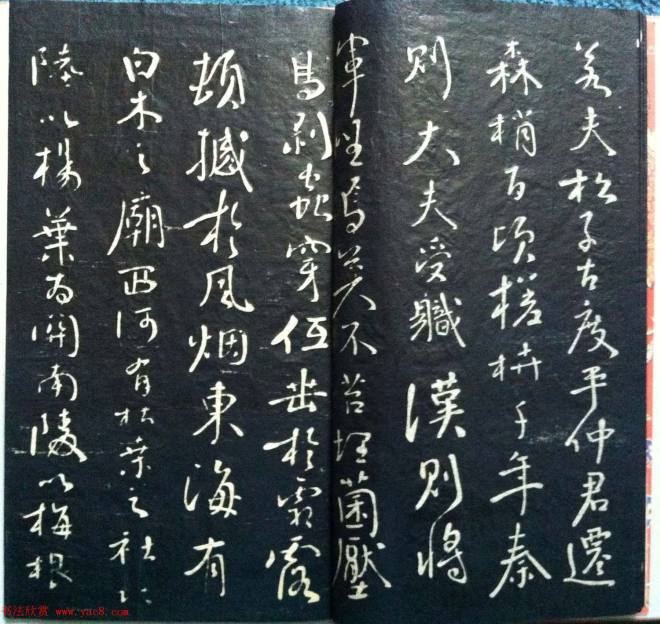 若夫松子古度平仲君遷
森梢百頃槎枿千年秦
則大夫受職漢則將
軍坐焉莫不苔埋菌壓
鳥剥虫穿低垂於霜露
頓撼於風烟東海有
白木之廟西河有枯桒之社北
陸以楊葉為關南陵以梅根
书法欣赏 www.yac8.com